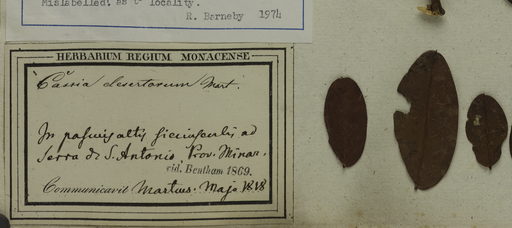 Mislabelled: as to locality.
R. Barneby 1974
HERBARIUM REGIUM MONACENSE
Cassia desertorum Mart.
In pascuis altis ad
Serra de S. Antonio, Prov. Minar.
vid. Bentham 1869.
Communicavit Martius. Majo